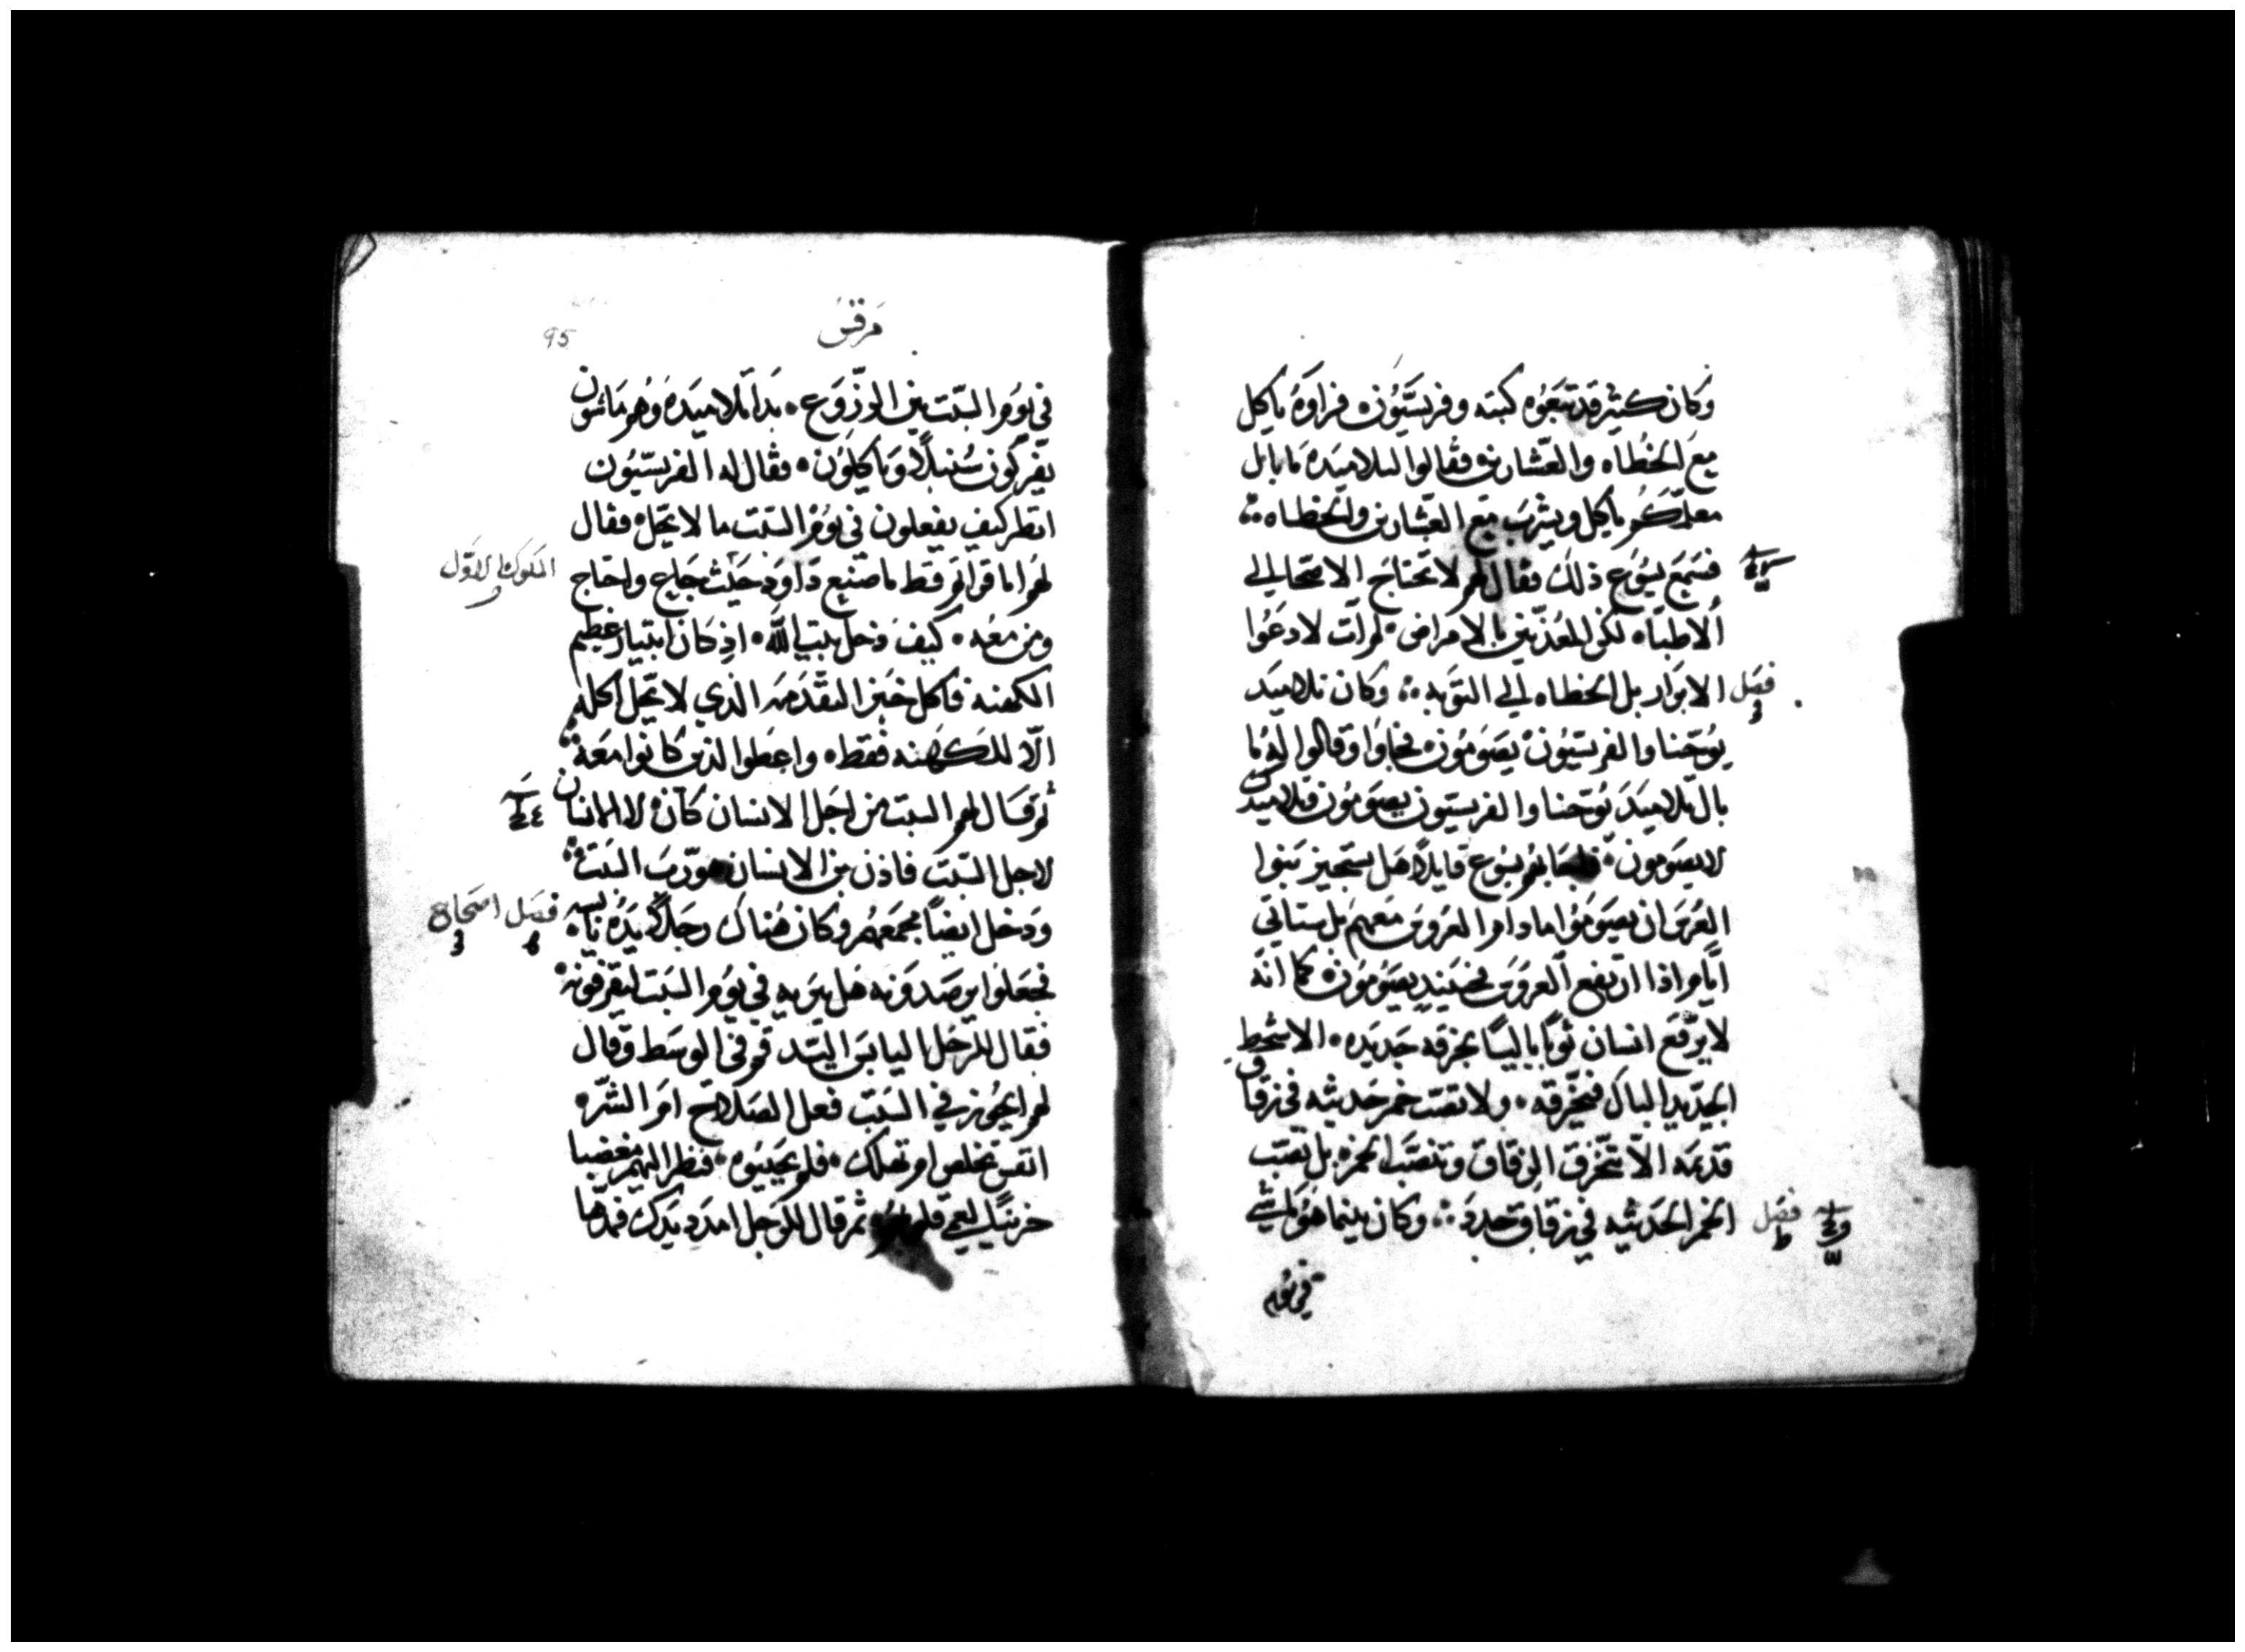 وكان كثير قد تبعوه كتبه وفريسيون فراوه ياكل
مع الخطاه والعشارين فقالوا لتلاميذه ما بال
معلمكم ياكل ويشرب مع العشارين والخطاه
فسمع يسوع ذلك فقال لهم لا تحتاج الاصحا الي
الاطباء لكن المعذبين بالامراض لم ات لادعوا
فصل
الابرار بل الخطاه الي التوبه وكان تلاميد
يوحنا والفريسيون يصومون فجاوا وقالوا له ما
بال تلاميد يوحنا والفريسيون يصومون وتلاميدك
لا يصومون فاجابهم يسوع قايلا هل يستجيز بنوا
العرس ان يصوموا ما دام العروس معهم بل ستاتي
ايام اذا ارتفع العروس فحينيد يصومون كما انه
لا يرقع انسان ثوبا باليا بخرقه جديده الا
الجديد البال فيخرقه ولا تصب خمر حديثه في زقاق
قديمه الا تتخرق الزقاق وتنصب الخمره بل تصب
الخمر الحديثه في زقاق جدد وكان بينما هو
فصل
مرقس
95
في يوم السبت بين الزروع بدا تلاميده وهم ماشون
يفركون سنبلا وياكلون فقال له الفريسيون
انظر كيف يفعلون في يوم السبت ما لا يحل فقال
لهم اما قراتم قط ما صنع داوود حيث جاع واحتاج
الملوك الاول
ومن معه كيف دخل بيت الله اذ كان ابيتار عظيم
الكهنه فاكل خبز التقدمه الذي لا يحل اكله
الا للكهنه فقط واعطوا الذين كانوا معه
ثم قال لهم السبت من اجل الانسان كان لا الانسان
لاجل السبت فاذن بن الانسان هو رب السبت
فصل اصحاح
ودخل ايضا مجمعهم وكان هناك رجلا يده يابسه
فجعلوا يرصدونه هل يبريه في يوم السبت ليقرفونه
فقال للرجل اليابس اليد قم في الوسط وقال
لهم ايجوز في السبت فعل الصلاح ام الشر
انفس تخلص ام تهلك فلم يجيبوه فنظر اليهم مغضبا
حزينا لعمي ثم قال للرجل امدد يدك فمدها